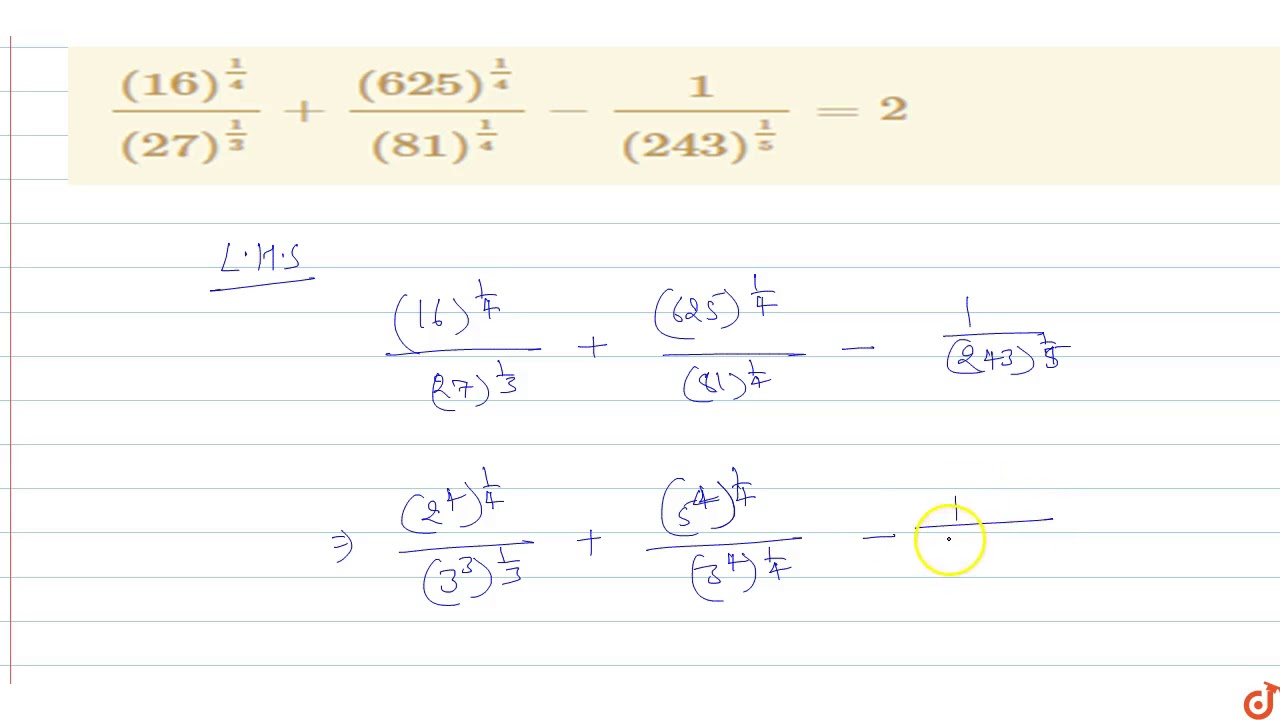 (16)^(1/4) / (27)^(1/3) + (625)^(1/4) / (81)^(1/4) − 1 / (243)^(1/5) = 2
L.H.S
(16)^(1/4) / (27)^(1/3) + (625)^(1/4) / (81)^(1/4) − 1 / (243)^(1/5)
⇒ (2^4)^(1/4) / (3^3)^(1/3) + (5^4)^(1/4) / (3^4)^(1/4) − 1 /